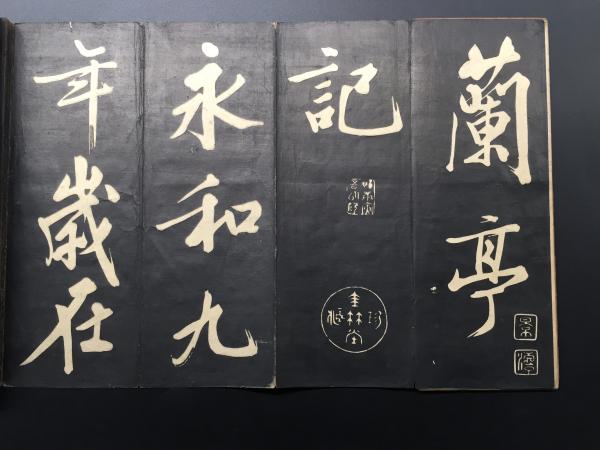 蘭亭
記
永和九
年歲在